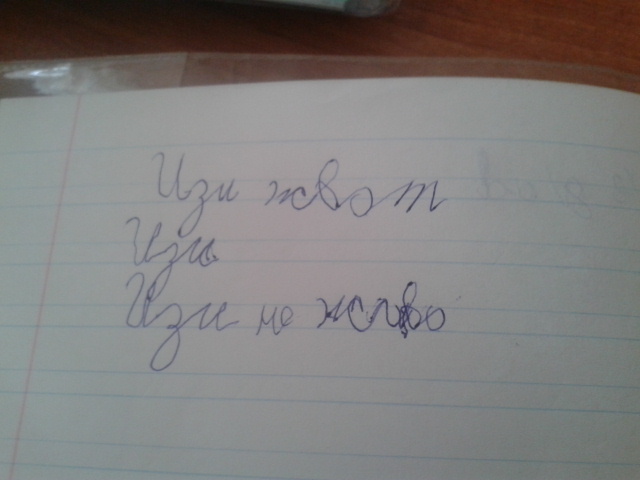 Изи жвот
Изи
Изи не живо